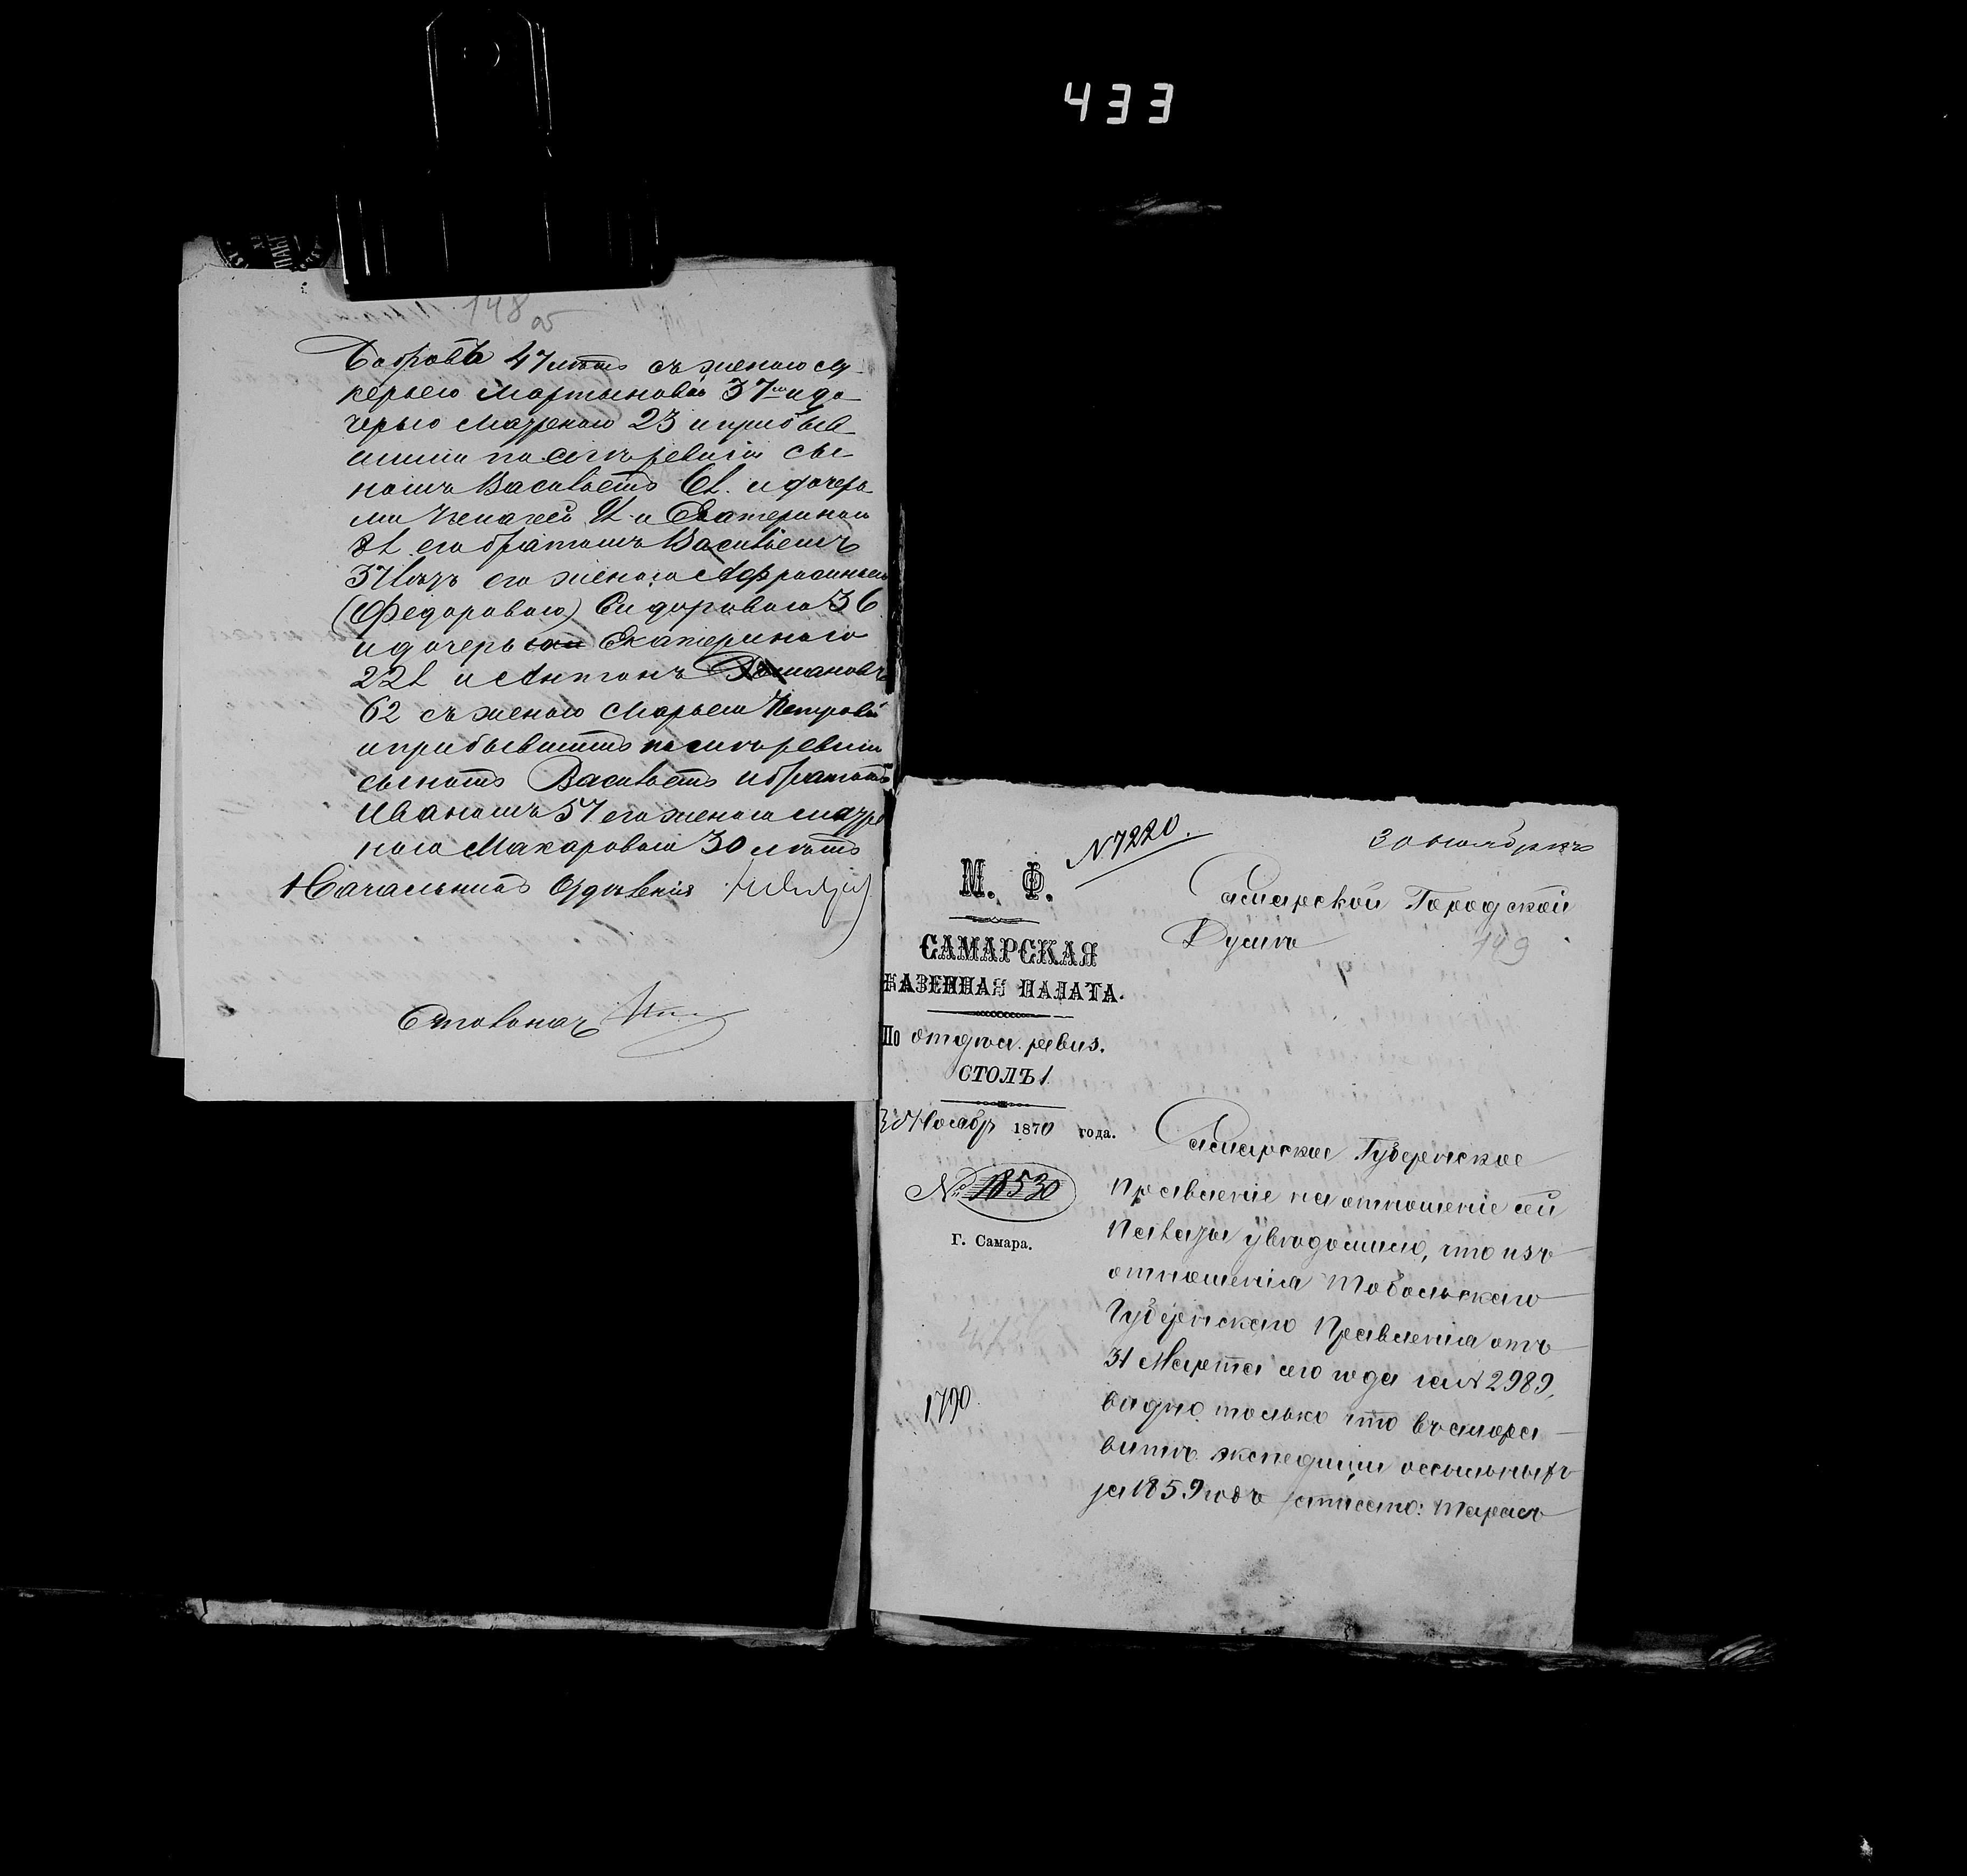 433
148 об
Бобровъ 47 лѣтъ съ женою Лу-
керьею Мартыновой 37 и до-
черью Матреною 23 и прибыв
шими послѣ ревизіи сы-
номъ Васильемъ 6 л. и дочерь
ми 11 л. и Екатериною
8 л. его братомъ Васильемъ
37 лѣтъ его женою Афросиньею
(Федоровою) Сидоровою 36
и дочерью Екатериною
22 л и Антонъ Романовъ
62 съ женою Марьею Петровой
и прибывшимъ послѣ ревизіи
сыномъ Васильемъ и братомъ
Иваномъ 57 его женою Матре
ною Макаровою 30 лѣтъ
Начальникъ Отдѣленія
Столонач
N 7220.
30 Ноября
М. Ф.
САМАРСКАЯ
КАЗЕННАЯ ПАЛАТА.
По отдѣл. ревиз.
СТОЛЪ 1
30 Ноябр 1870 года.
№ 18530
Г. Самара.
1790
Самарской Городской
Думѣ
149
Самарское Губернское
Правленіе на отношеніе сей
Палаты увѣдомило, что изъ
отношенія Тобольскаго
Губернскаго Правленія отъ
31 Марта сего года за N 2989,
видно только что въ алфа-
витѣ экспедиціи ссыльныхъ
за 1859 годъ записано: Тарасъ